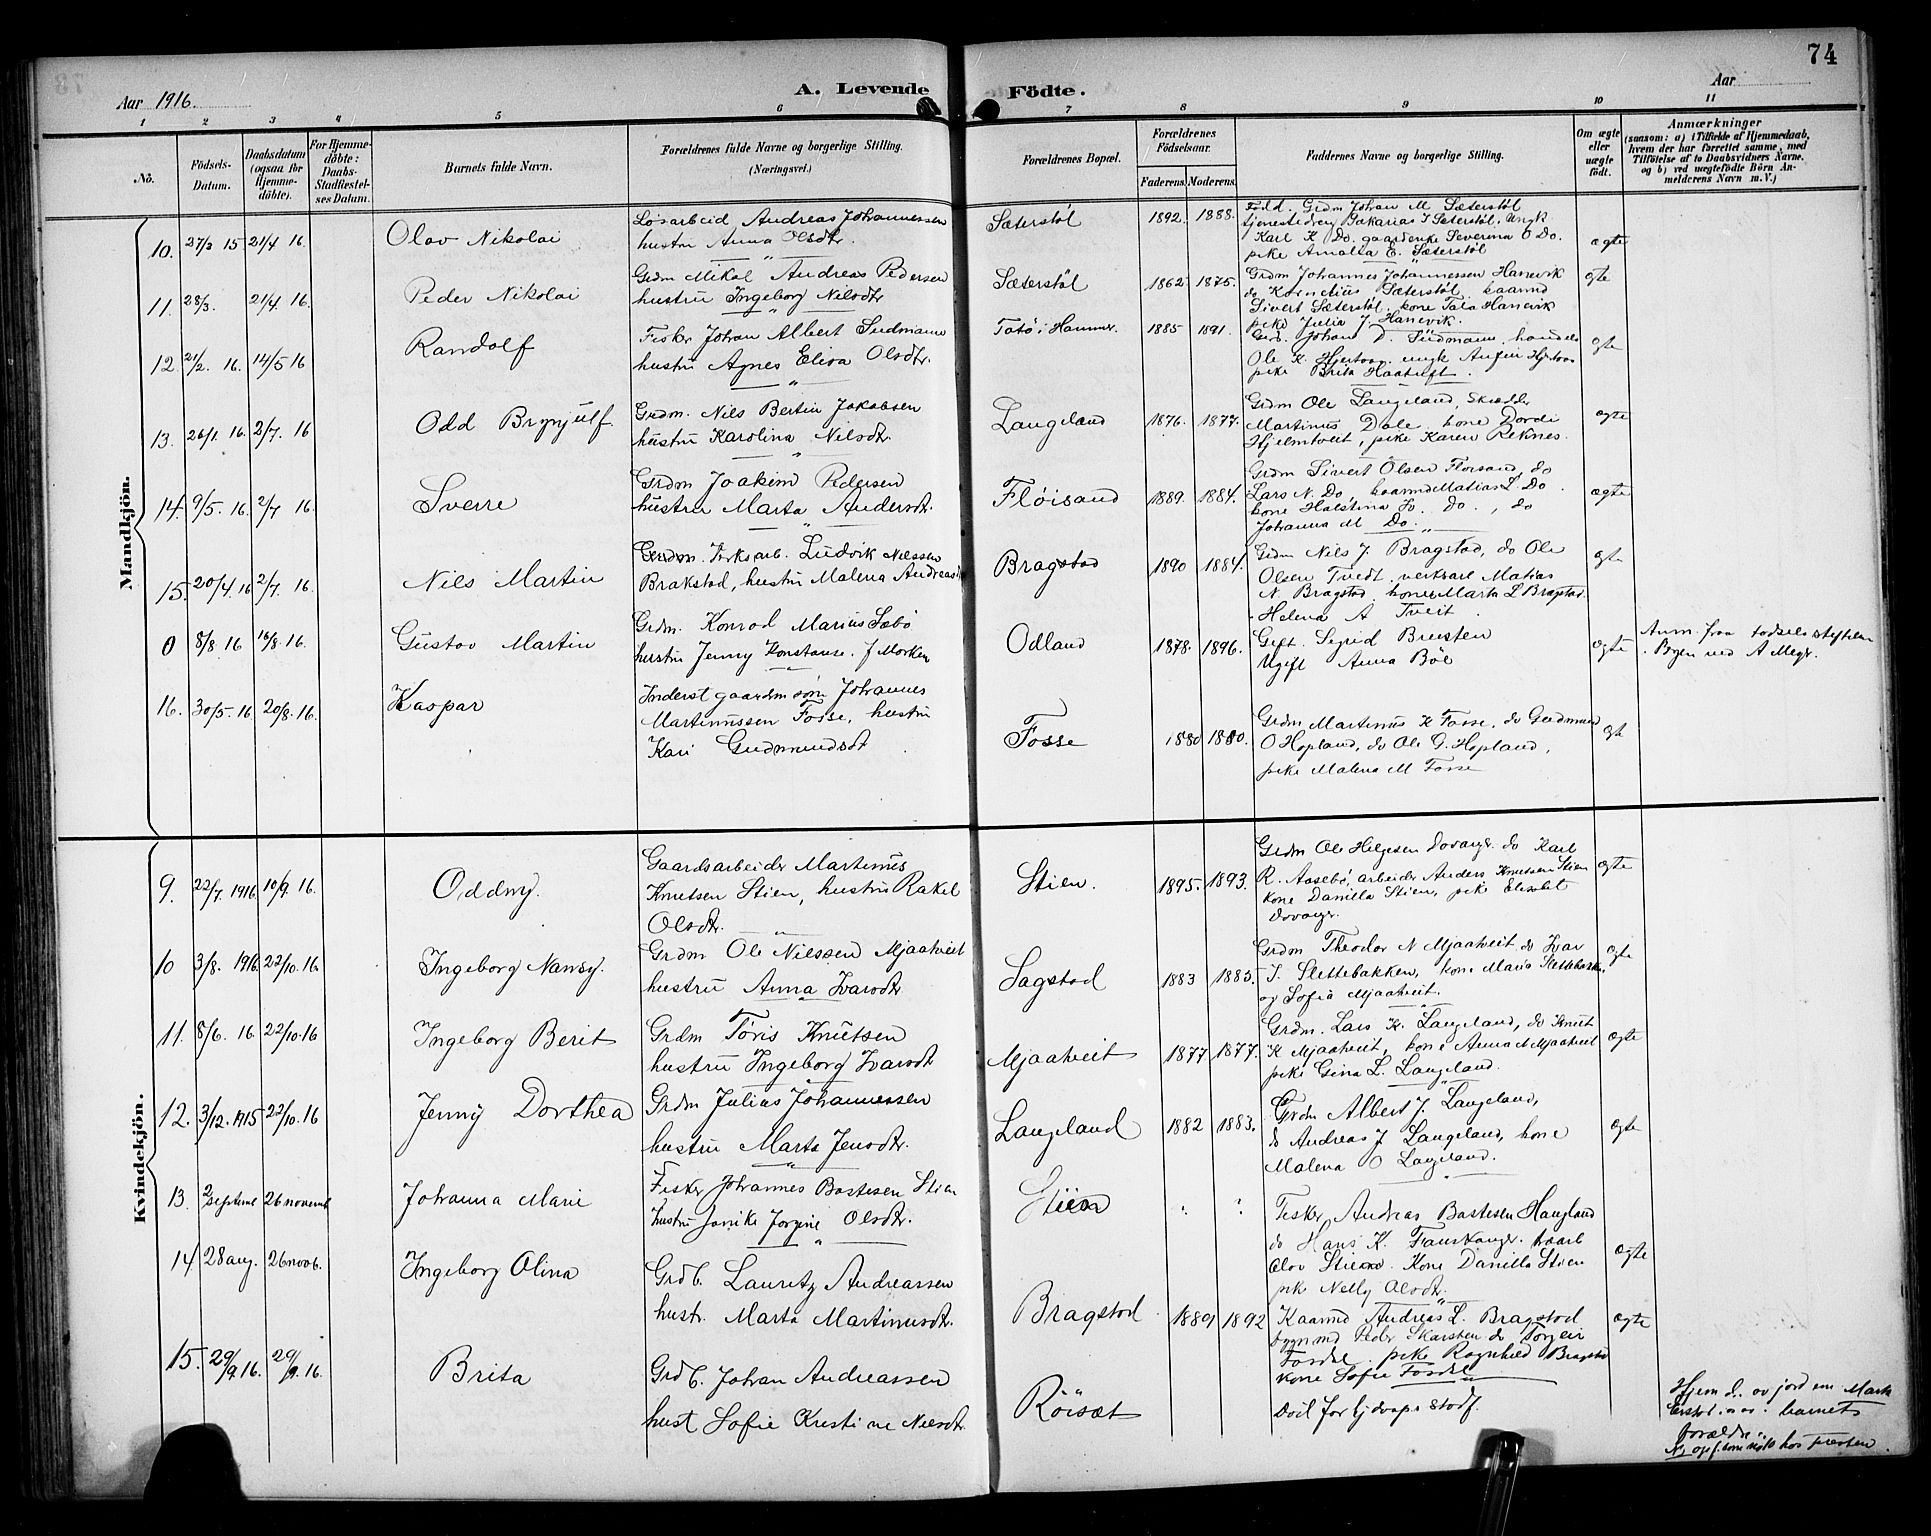 74
Aar 1916.
A. Levende Födte.
Aar
1 2 3 4 5 6 7 8 9 10 11
No.
Födsels-Datum.
Daabsdatum (ogsaa for Hjemmedöbte).
For Hjemmedöbte: Daabs-Stadfæstelses Datum.
Barnets fulde Navn.
Forældrenes fulde Navne og borgerlige Stilling.
(Næringsvei.)
Forældrenes Bopæl.
Forældrenes Födselsaar.
Faderens. Moderens.
Faddernes Navne og borgerlige Stilling.
Om ægte eller uægte födt.
Anmærkninger
(saasom: a) i Tilfælde af Hjemmedaab, hvem der har forrettet samme, med Tilföielse af to Daabsvidners Navne, og b) ved uægtefödte Börn Anmelderens Navn m. V.)
Mandkjön.
10. 27/3 15 21/4 16. Olav Nikolai
Løsarbeid Andreas Johannessen
hustru Anna Olsdtr.
Sæterstøl 1892. 1888.
Fadd. Grdm Johan M Sæterstøl
tjenestedr Sakarias J Sæterstøl, Ungk
Karl K Do. gaardenke Severina O Do.
pike Amalia E. Sæterstøl
ægte
11. 28/3. 21/4 16. Peder Nikolai
Grdm Mikal Andreas Pedersen
hustru Ingeborg Nilsdtr
Sæterstøl 1862 1875.
Grdm Johannes Johannessen Hanevik
do Kornelius Sæterstøl, kaarmd
Sivert Sæterstøl, kone Tala Hanevik
pike Julia J. Hanevik.
ægte
12. 21/2. 16. 14/5 16 Randolf
Fisker Johan Albert Sudmann
hustru Agnes Elisa Olsdtr.
Totø i Hammer. 1885 1891.
Grdb. Johan D. Sudmann, handels
Ole K. Hjertaas. ungk Anfin Hjertaas
pike Brita Haatuft.
ægte
13. 26/1. 16. 2/7. 16 Odd Brynjulf
Grdm. Nils Bertin Jakobsen
hustru Karolina Nilsdtr.
Langeland 1876. 1877.
Grdm Ole Langeland, Skrædder
Martinus Dale, kone Dordi
Hjelmtveit, pike Karen Reknes.
ægte
14. 9/5. 16. 2/7 16 Sverre
Grdm Joakim Pedersen
hustru Marta Andersdtr.
Fløisand 1889. 1884.
Grdm Sivert Olsen Floisand, do
Lars N. Do, kaarmd Matias L Do.
kone Halstina Jo. do., do
Johanna M Do.
ægte
15. 20/4. 16 2/7. 16. Nils Martin
Grdm. Jerksarb. Ludvik Nilssen
Brakstad, hustru Malena Andreasd
Bragstad 1890 1884.
Grdm Nils J. Bragstad, do Ole
Olsen Tvedt. verksarb Matias
N. Bragstad, kone Marta L Bragstad.
Helena A Tveit
ægte
0 8/8 16 16/8. 16. Gustav Martin
Grdm. Konrad Marius Sæbø
hustru Jenny Konstanse. f Morken
Odland 1878. 1896.
Gift. Sigrid Breisten
Ugift Anna Böe
ægte
Anm. fra fødselsstiftelsen
i Bgen ved A Megr.
16. 30/5. 16 20/8. 16. Kaspar
Inderst gaardm søn Johannes
Martinussen Fosse, hustru
Kari Gudmundsdt
Fosse 1880 1880.
Grdm. Martinus K Fosse, do Gudmund
O Hopland, do Ole G. Hopland,
pike Malena M Fosse
ægt
Kvindekjön.
9. 22/7. 1916. 10/9. 16. Oddny.
Gaardsarbeider Martinus
Knutsen Stien, hustru Rakel
Olsdtr.
Stien. 1895. 1893.
Grdm Ole Helgesen Dovarg. do Karl
R. Aasebö, arbeider Anders Knutsen Stien
kone Danilla Stien, pike Elisabet
Dovarg.
ægte
10 3/8. 1916. 22/10. 16. Ingeborg Nansy.
Grdm Ole Nilssen Mjaatveit
hustru Anna Ivarsdtr
Sagstad 1883 1885.
Grdm Theodor N Mjaatveit do Ivar
J. Slettebakken, kone Maria Slettebakk.
og Sofia Mjaatveit.
ægte
11. 8/6. 16. 22/10. 16 Ingeborg Berit
Grdm Töris Knutsen
hustru Ingeborg Ivarsdt
Mjaatveit 1877 1877.
Grdm. Lars K. Langeland, do Knut
K Mjaatveit, kone Anna N Mjaatveit
pike Gina L. Langeland.
ægte
12. 3/12. 1915 22/10. 16 Jenny Dorthea
Grdm Julius Johannessen
hustru Marta Jensdtr.
Langeland 1882 1883.
Grdm Albert J. Langeland,
do Andreas J Langeland, kone
Malena O Langeland.
ægte
13. 2 septembr 26 novemb Johanna Marie
Fisker Johannes Bastesen Stien
hustru Janike Jorgine Olsdtr.
Stien
Fisker Andreas Bastesen Haugland
do Hans K. Fauskanger. kaarb
Olav Stien. Kone Danilla Stien
pik Nelly Olsdtr.
ægte
14 28 aug. 26 novb. Ingeborg Olina
Grdb. Lauritz Andreassen
hustr. Marta Martinusdtr.
Bragstad 1889 1892
Kaarmd Andreas L. Bragstad
bygnmd Peder Skarsten do Torgeir
Fosdal. pike Ragnhild Bragstad
kone Sofie Fosdal
ægte
15. 29/9. 16. 29/9. 16. Brita
Grdb. Johan Andreassen
hust Sofie Kristine Nilsdtr.
Röisæt
Hjem d. av jordem Marta
barnets
forældre.
hos Presten.